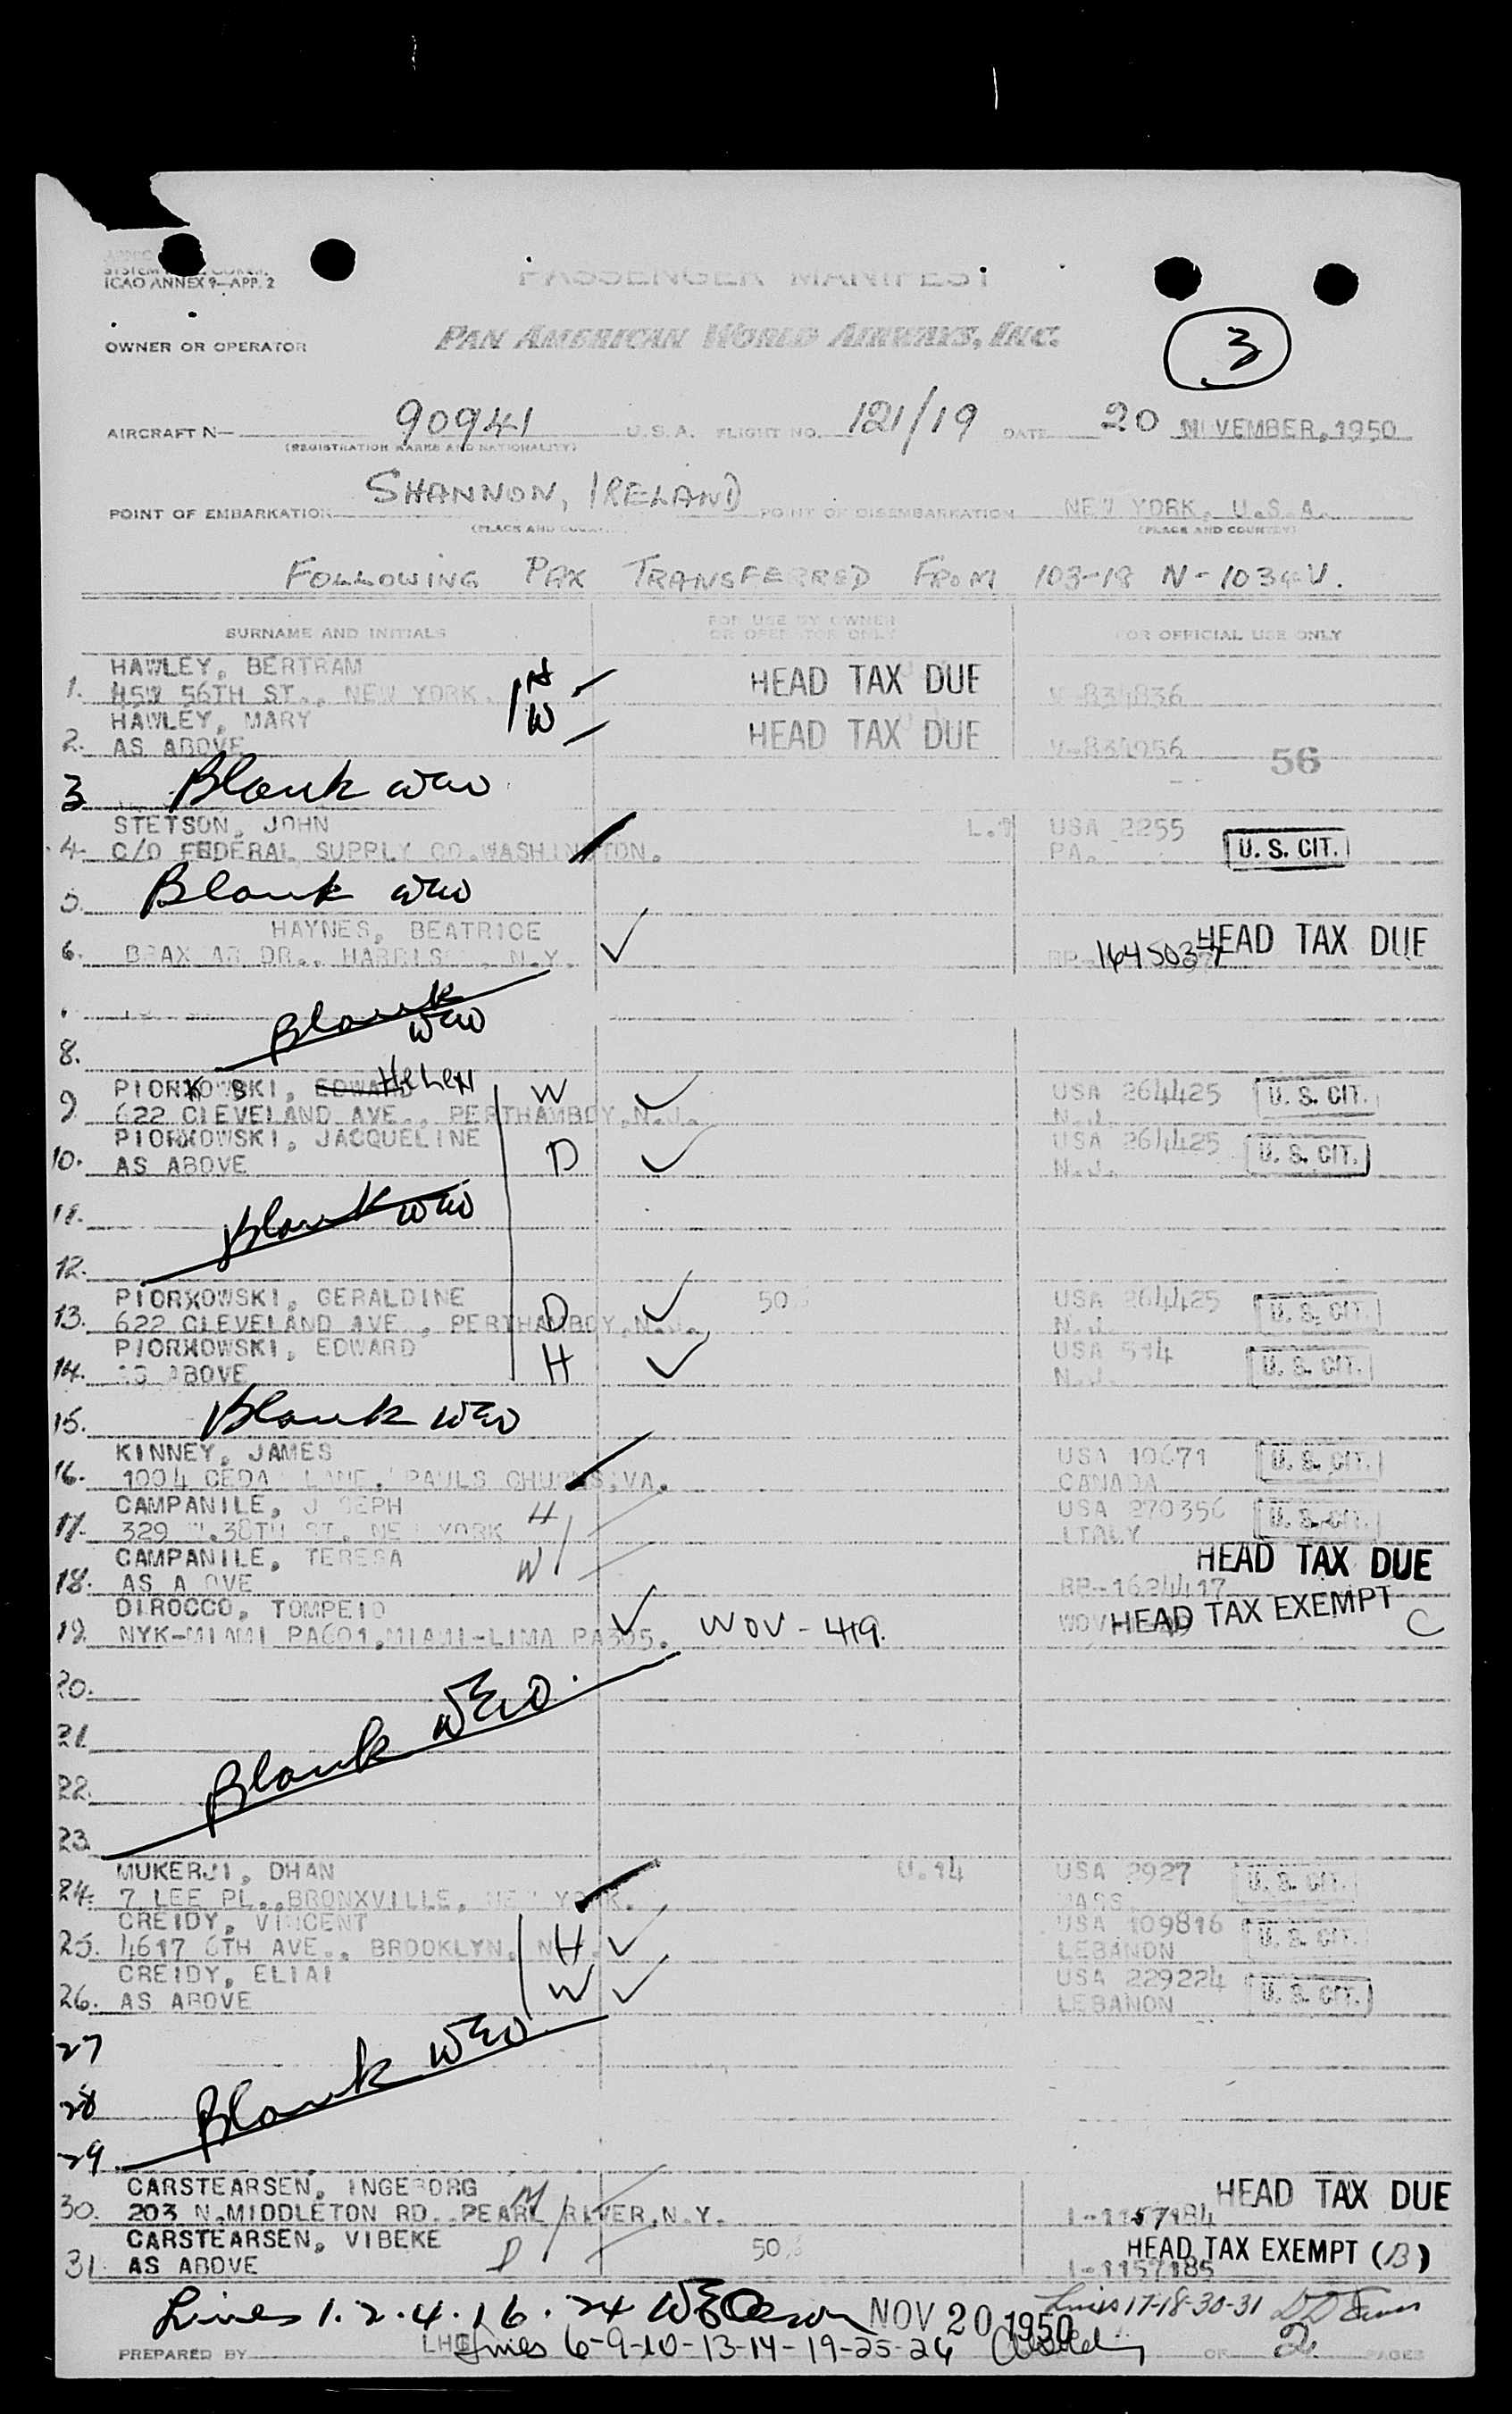 ICAO ANNEX 9—APP. 2
PASSENGER MANIFEST
OWNER OR OPERATOR
PAN AMERICAN WORLD AIRWAYS, INC.
3
AIRCRAFT N— 90941 U.S.A. FLIGHT NO. 121/19 DATE 20 NOVEMBER, 1950
(REGISTRATION MARKS AND NATIONALITY)
POINT OF EMBARKATION SHANNON, IRELAND POINT OF DISEMBARKATION NEW YORK, U.S.A.
(PLACE AND COUNTRY) (PLACE AND COUNTRY)
FOLLOWING PAX TRANSFERRED FROM 103-18
SURNAME AND INITIALS FOR USE BY OWNER OR OPERATOR ONLY FOR OFFICIAL USE ONLY
HAWLEY, BERTRAM H HEAD TAX DUE
1. 45W 56TH ST., NEW YORK. V-834836
HAWLEY, MARY W HEAD TAX DUE
2. AS ABOVE 56
3 Blank WEO
STETSON, JOHN USA 2255 U. S. CIT.
4. C/O FEDERAL SUPPLY CO. WASHINGTON. PA.
5. Blank WEO
HAYNES, BEATRICE HEAD TAX DUE
6. DR., N.Y.
Blank WEO
8.
PIORKOWSKI, EDWARD HELEN W USA 264425 U. S. CIT.
9. 622 CLEVELAND AVE., PERTHAMBOY, N.J. N.J.
PIORKOWSKI, JACQUELINE USA 264425 U. S. CIT.
10. AS ABOVE D N.J.
11. Blank WEO
12.
PIORKOWSKI, GERALDINE 50% USA 264425 U. S. CIT.
13. 622 CLEVELAND AVE., PERTHAMBOY, N.J. D N.J.
PIORKOWSKI, EDWARD USA 514 U. S. CIT.
14. AS ABOVE H N.J.
15. Blank WEO
KINNEY, JAMES USA 10671 U. S. CIT.
16. 1004 CEDAR LANE, VA. CANADA
CAMPANILE, JOSEPH H USA 270356 U. S. CIT.
17. 329 W.38TH ST. NEW YORK ITALY
CAMPANILE, TERESA W HEAD TAX DUE
18. AS ABOVE RP-1624417
DIROCCO, TOMPEIO HEAD TAX EXEMPT C
19. NYK-MIAMI PA601, MIAMI-LIMA PA305. WOV-419.
20.
21. Blank WEO.
22.
23.
MUKERJI, DHAN U.14 USA 2927 U. S. CIT.
24. 7 LEE PL., BRONXVILLE, NEW YORK. MASS.
CREIDY, VINCENT USA 109816 U. S. CIT.
25. 4617 6TH AVE., BROOKLYN, N.Y. H LEBANON
CREIDY, ELIAI USA 229224 U. S. CIT.
26. AS ABOVE W LEBANON
27
28 Blank WEO.
29.
CARSTEARSEN, INGEBORG M HEAD TAX DUE
30. 203 N.MIDDLETON RD. PEARL RIVER, N.Y. I-1157184
CARSTEARSEN, VIBEKE D 50% HEAD TAX EXEMPT (B)
31 AS ABOVE I-1157185
Lines 1.2.4.16.24 NOV 20 1950 Lines 17-18-30-31
PREPARED BY Lines 6-9-10-13-14-19-25-26 OF 2 PAGES